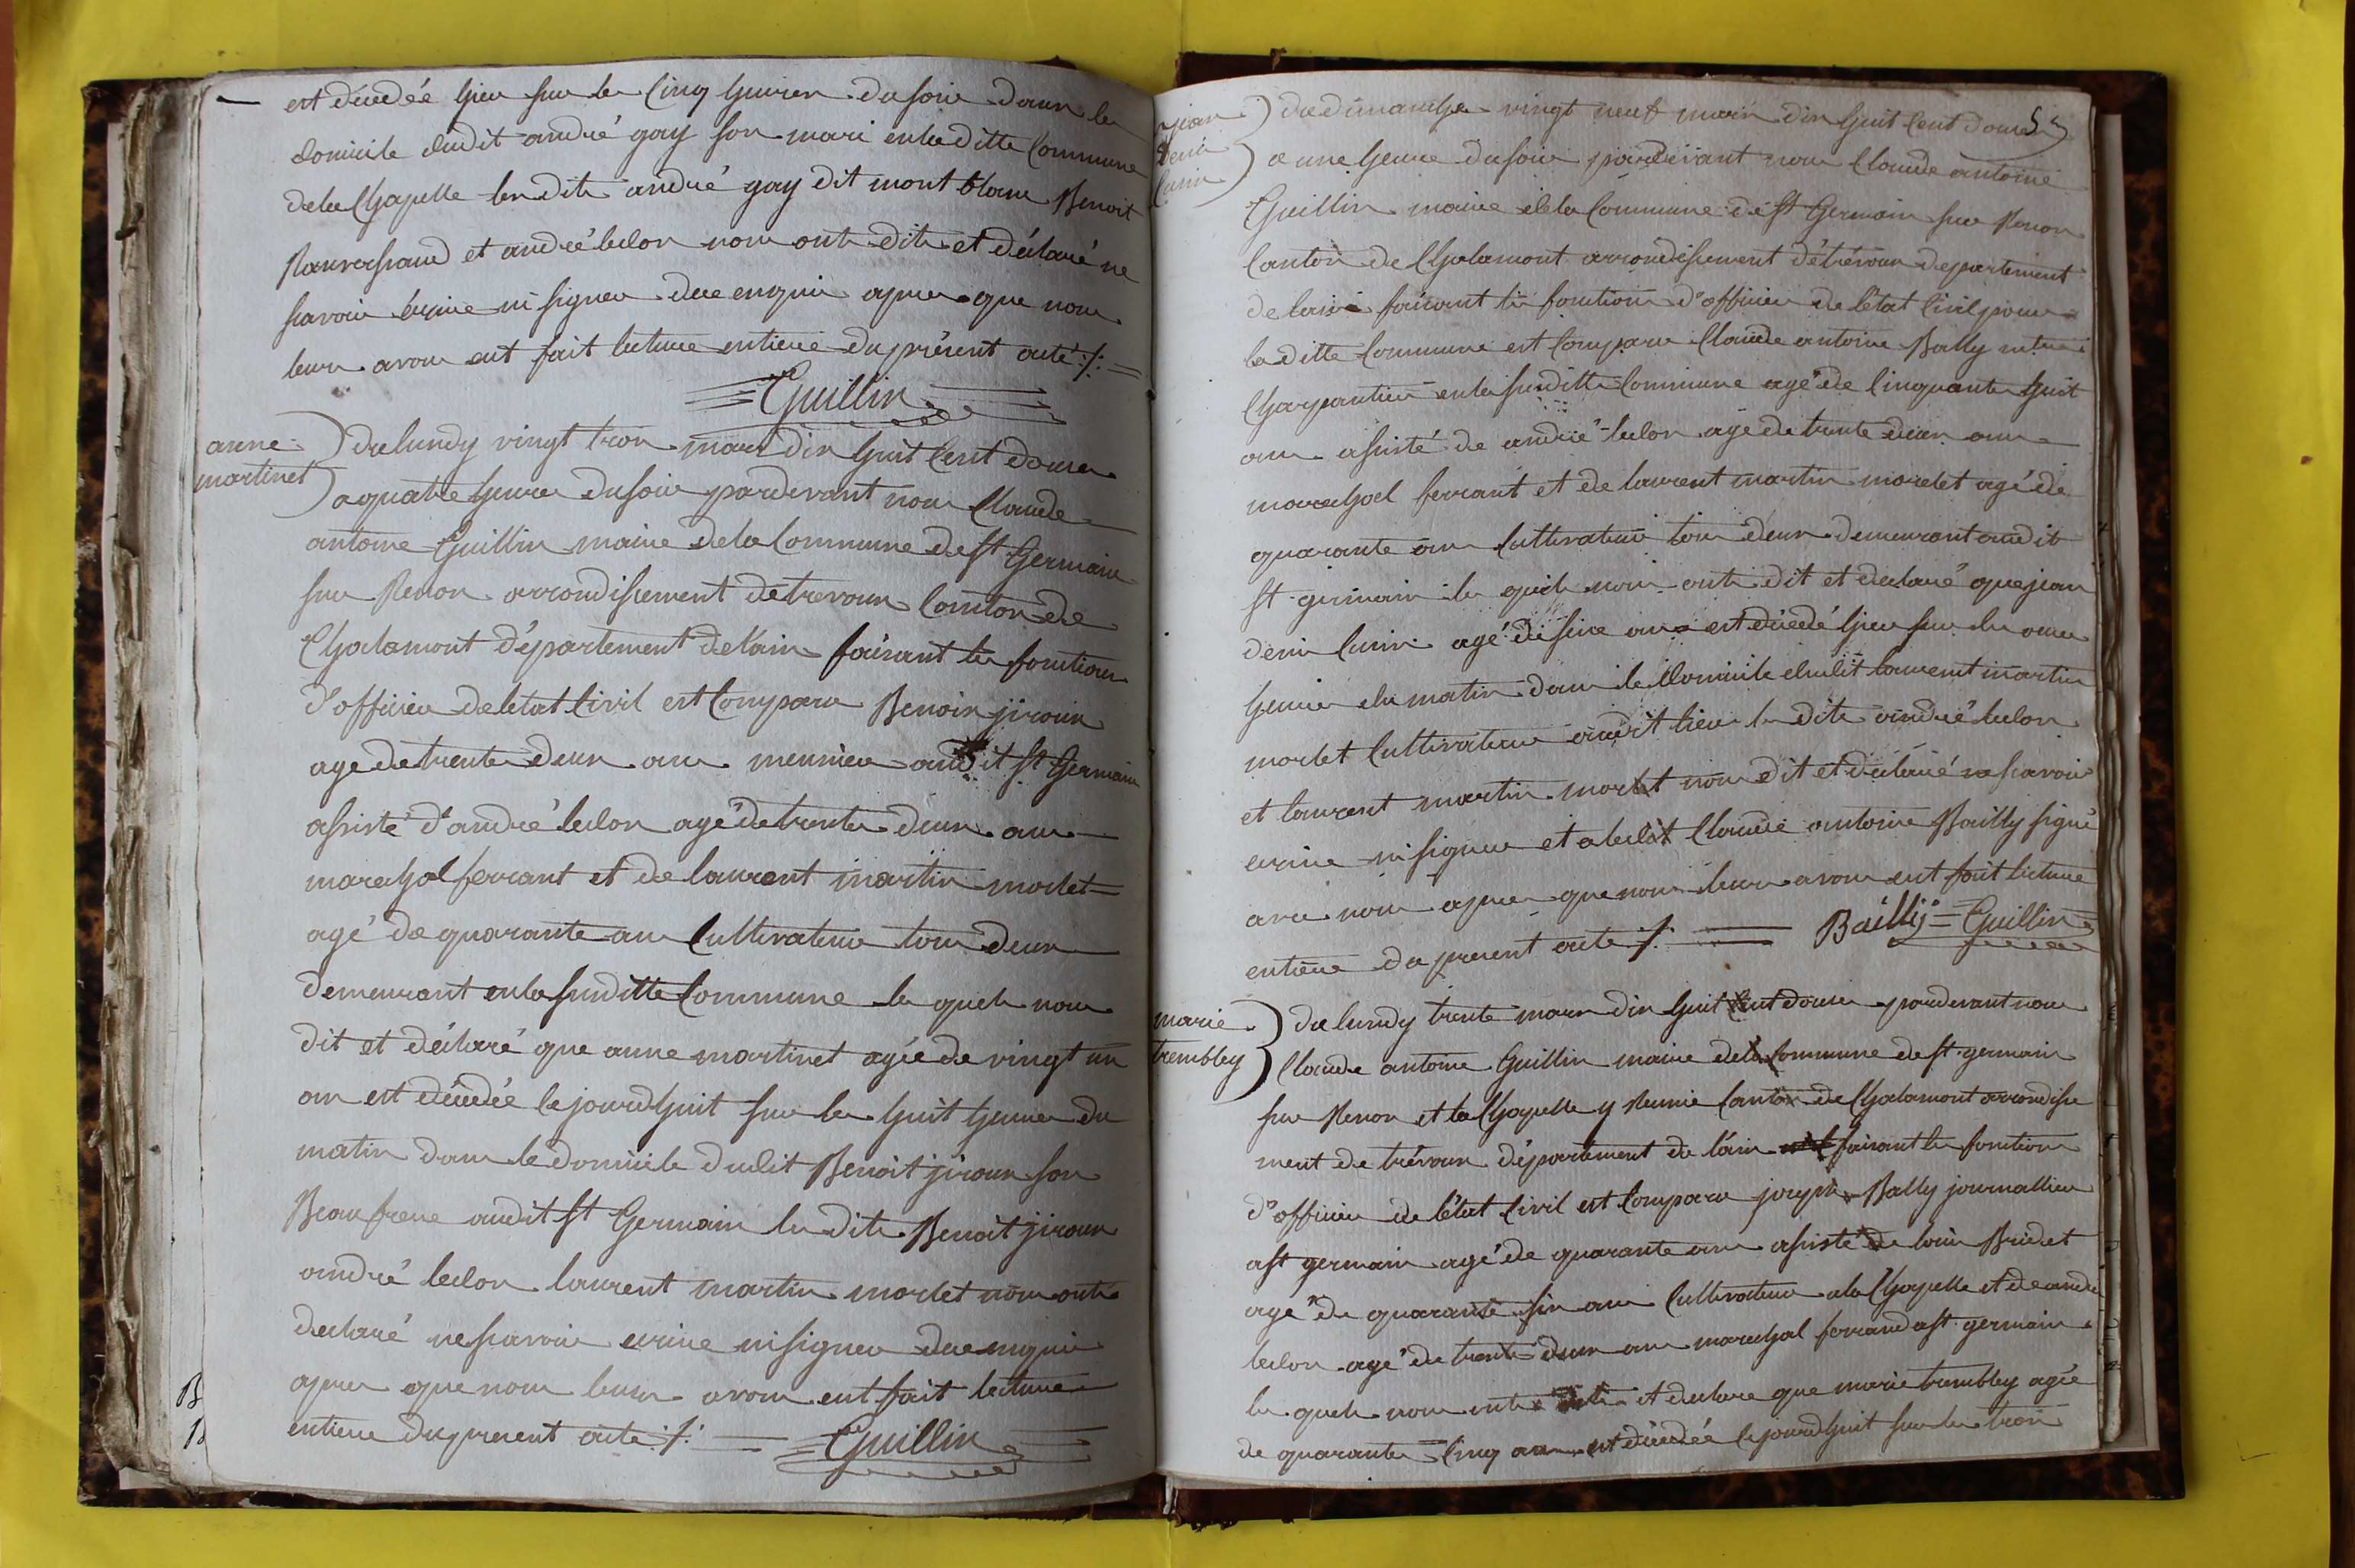 est décedée hier sur les cinq heures du soir dans le
domicile dudit andré gay son mari en laditte Commune
dela Chapelle lesdits andré gay dit mont blanc Benoit
et andré leclon nous ont dits et déclaré ne
scavoir écrire ni signer dece enquis apres que nous
leurs avons eut fait lecture entiere du présent acte ·/·
Guillin
anne
martinet
du lundy vingt trois mars dix huit Cent douze
a quatre heures du soir pardevant nous Claude
antoine Guillin maire dela Commune de St Germain
sur Renon arrondissement de trevoux Canton de
Chalamont département de l'ain faisant les fonctions
d'officier de letat Civil est Comparu Benoir jiroux
age de trente deux ans meunier audit St Germain
assisté d'andré leclon agé de trente deux ans
marechal ferrant et de laurent martin morlet
agé de quarante ans Cultivateur tous deux
demeurant en la susditte Commune les quels nous
dit et déclaré que anne martinet agée de vingt un
an est décedée cejourdhuit sur les huit heures du
matin dans le domicile dudit Benoit jiroux son
Beaufrere audit St Germain lesdits Benoit jiroux
andré leclon laurent martin morlet nous onts
declaré ne scavoir ecrire ni signer dece enquis
apres que nous leurs avons eut fait lecture
entiere du present acte ·/· Guillin
B
jean
denis
du dimanche vingt neuf mars dix huit Cent douze 55
a une heure du soir pardevant nous Claude antoine
Guillin maire dela Commune de St Germain sur Renon
Canton de Chalamont arrondissement de trévoux departement
de lain faisant les fonctions d'officier de létat Civil pour
laditte Commune est Comparu Claude antoine Bally
Charpantier en la susditte Commune agé de Cinquante huit
ans assisté de andré leclon agé de trente deux ans
marechal ferrant et de laurent martin morlet agé de
quarante ans Cultivateur tous deux demeurant audit
St germain les quels nous onts dit et declaré que jean
denis agé de seize ans est décedé hier sur les onze
heures du matin dans le domicile dudit laurent martin
morlet Cultivateur audit lieu lesdits andré leclon
et laurent martin morlet nous dit et déclaré ne scavoir
ecrire ni signer et a ledit Claude antoine Bailly signé
avec nous apres que nous leurs avons eut fait lecture
entiere du present acte ·/· Bailly Guillin
marie
trembley
du lundy trente mars dix huit Cent douze pardevant nous
Claude antoine Guillin maire dela Commune de St germain
sur Renon et la Chapelle y Reunie Canton de Chalamont arrondisse
ment de trévoux département de l'ain faisant les fonctions
d'officier de létat Civil est Comparu joseph Bally journallier
a St germain agé de quarante ans assisté de louis Bridet
agé de quarante six ans Cultivateur a la Chapelle et de andré
leclon agé de trente deux ans marechal ferrand a St germain
les quels nous onts et declare que marie trembley agée
de quarante Cinq ans est décedée cejourdhuit sur les trois